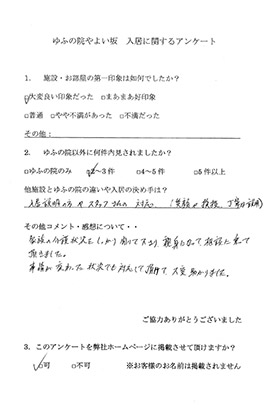 ゆふの院やよい坂 入居に関するアンケート
1. 施設・お部屋の第一印象は如何でしたか?
☑大変良い印象だった □まあまあ好印象
□普通 □やや不満があった □不満だった
その他:
2. ゆふの院以外に何件内見されましたか?
□ゆふの院のみ ☑2~3件 □4~5件 □5件以上
他施設とゆふの院の違いや入居の決め手は?
入居説明の方やスタッフさんの対応。(笑顔の挨拶、丁寧な説明)
その他コメント・感想について・・
家族の介護状況をしっかり聞いて下さり、親身になって相談に乗って
頂きました。
事情が変わった状況でも対応して頂けて、大変助かりました。
ご協力ありがとうございました
3. このアンケートを弊社ホームページに掲載させて頂けますか?
☑可 □不可 ※お客様のお名前は掲載されません